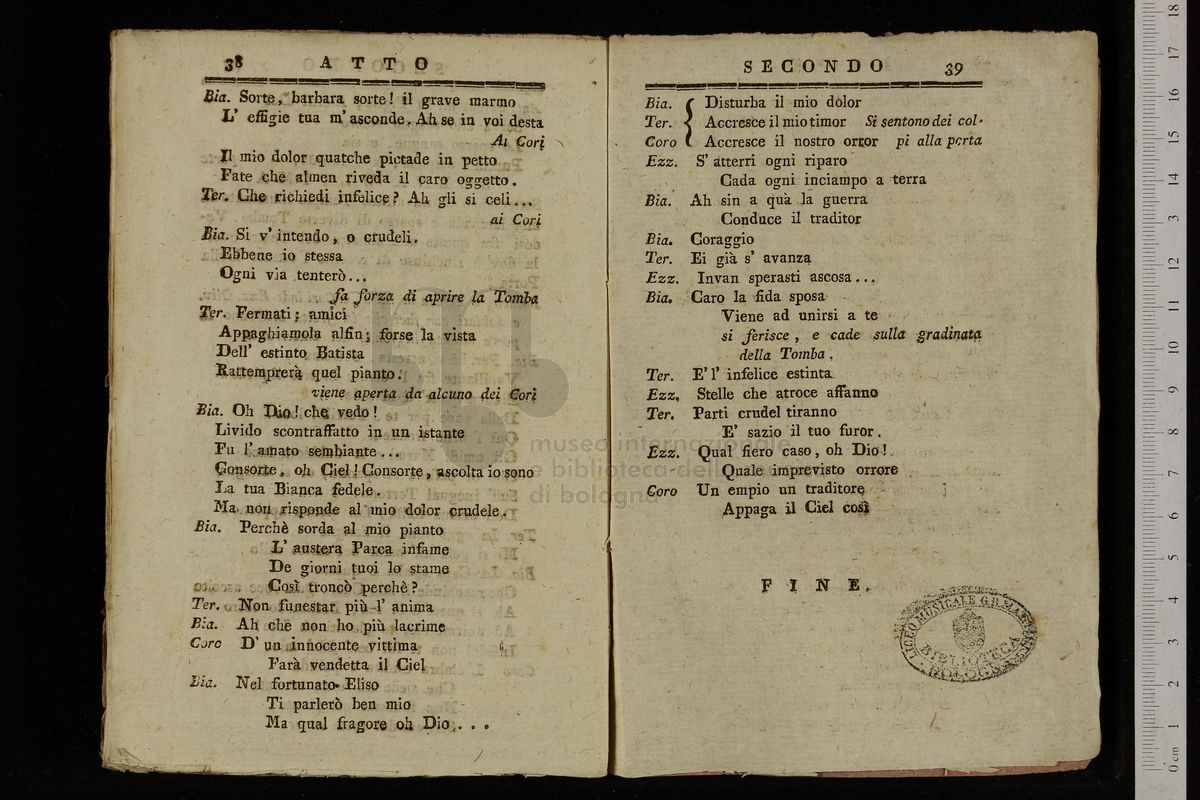 38 ATTO
Bia. Sorte, barbara sorte! il grave marmo
L' effigie tua m'asconde. Ah se in voi desta
Ai Cori
Il mio dolor quatche pietade in petto
Fate che almen riveda il caro oggetto.
Ter. Che richiedi infelice? Ah gli si celi...
ai Cori
Bia. Si v' intendo, o crudeli.
Ebbene io stessa
Ogni via tenterò...
fa forza di aprire la Tomba
Ter. Fermati; amici
Appaghiamola alfin; forse la vista
Dell' estinto Batista
Rattemprerà quel pianto.
viene aperta da alcuno dei Cori
Bia. Oh Dio! che vedo!
Livido scontraffatto in un istante
Fu l' amato sembiante...
Consorte, oh Ciel! Consorte, ascolta io sono
La tua Bianca fedele.
Ma non risponde al mio dolor crudele.
Bia. Perchè sorda al mio pianto
L' austera Parca infame
De giorni tuoi lo stame
Così troncò perchè?
Ter. Non funestar più l' anima
Bia. Ah che non ho più lacrime
Coro D' un innocente vittima
Farà vendetta il Ciel
Bia. Nel fortunato Eliso
Ti parlerò ben mio
Ma qual fragore oh Dio...
SECONDO 39
Bia. Disturba il mio dolor
Ter. { Accresce il mio timor Si sentono dei col-
Coro Accresce il nostro orror pi alla porta
Ezz. S' atterri ogni riparo
Cada ogni inciampo a terra
Bia. Ah sin a quà la guerra
Conduce il traditor
Bia. Coraggio
Ter. Ei già s' avanza
Ezz. Invan sperasti ascosa...
Bia. Caro la fida sposa
Viene ad unirsi a te
si ferisce, e cade sulla gradinata
della Tomba.
Ter. E' l' infelice estinta
Ezz. Stelle che atroce affanno
Ter. Parti crudel tiranno
E' sazio il tuo furor.
Ezz. Qual fiero caso, oh Dio!
Quale imprevisto orrore
Coro Un empio un traditore
Appaga il Ciel così
FINE.
LICEO MUSICALE G.B.
BIBLIOTECA
BOLOGNA
museo internazionale
e biblioteca della
di bologna
0 cm 1 2 3 4 5 6 7 8 9 10 11 12 13 14 15 16 17 18